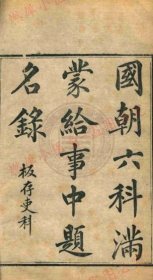 國朝六科滿
蒙給事中題
名錄
板存吏科